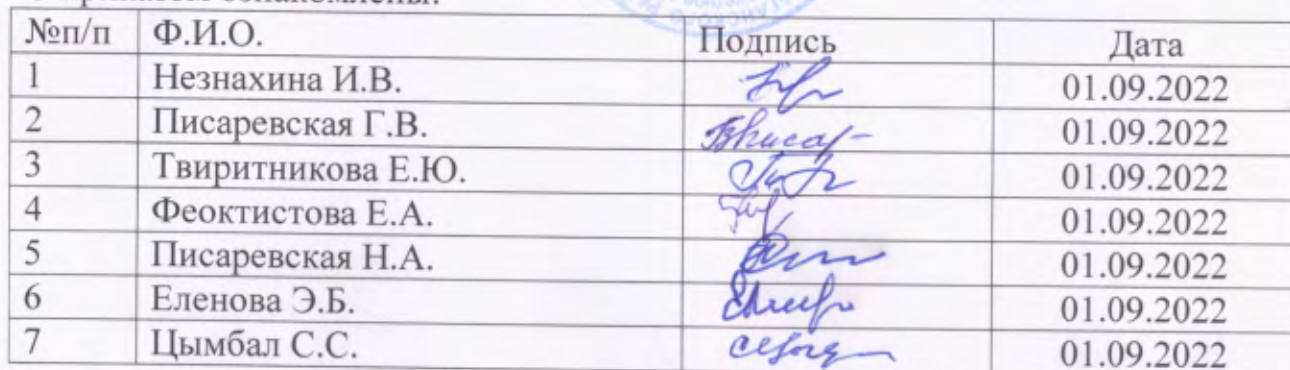 ознакомлены.
№п/п Ф.И.О. Подпись Дата
1 Незнахина И.В. 01.09.2022
2 Писаревская Г.В. 01.09.2022
3 Твиритникова Е.Ю. 01.09.2022
4 Феоктистова Е.А. 01.09.2022
5 Писаревская Н.А. 01.09.2022
6 Еленова Э.Б. 01.09.2022
7 Цымбал С.С. 01.09.2022